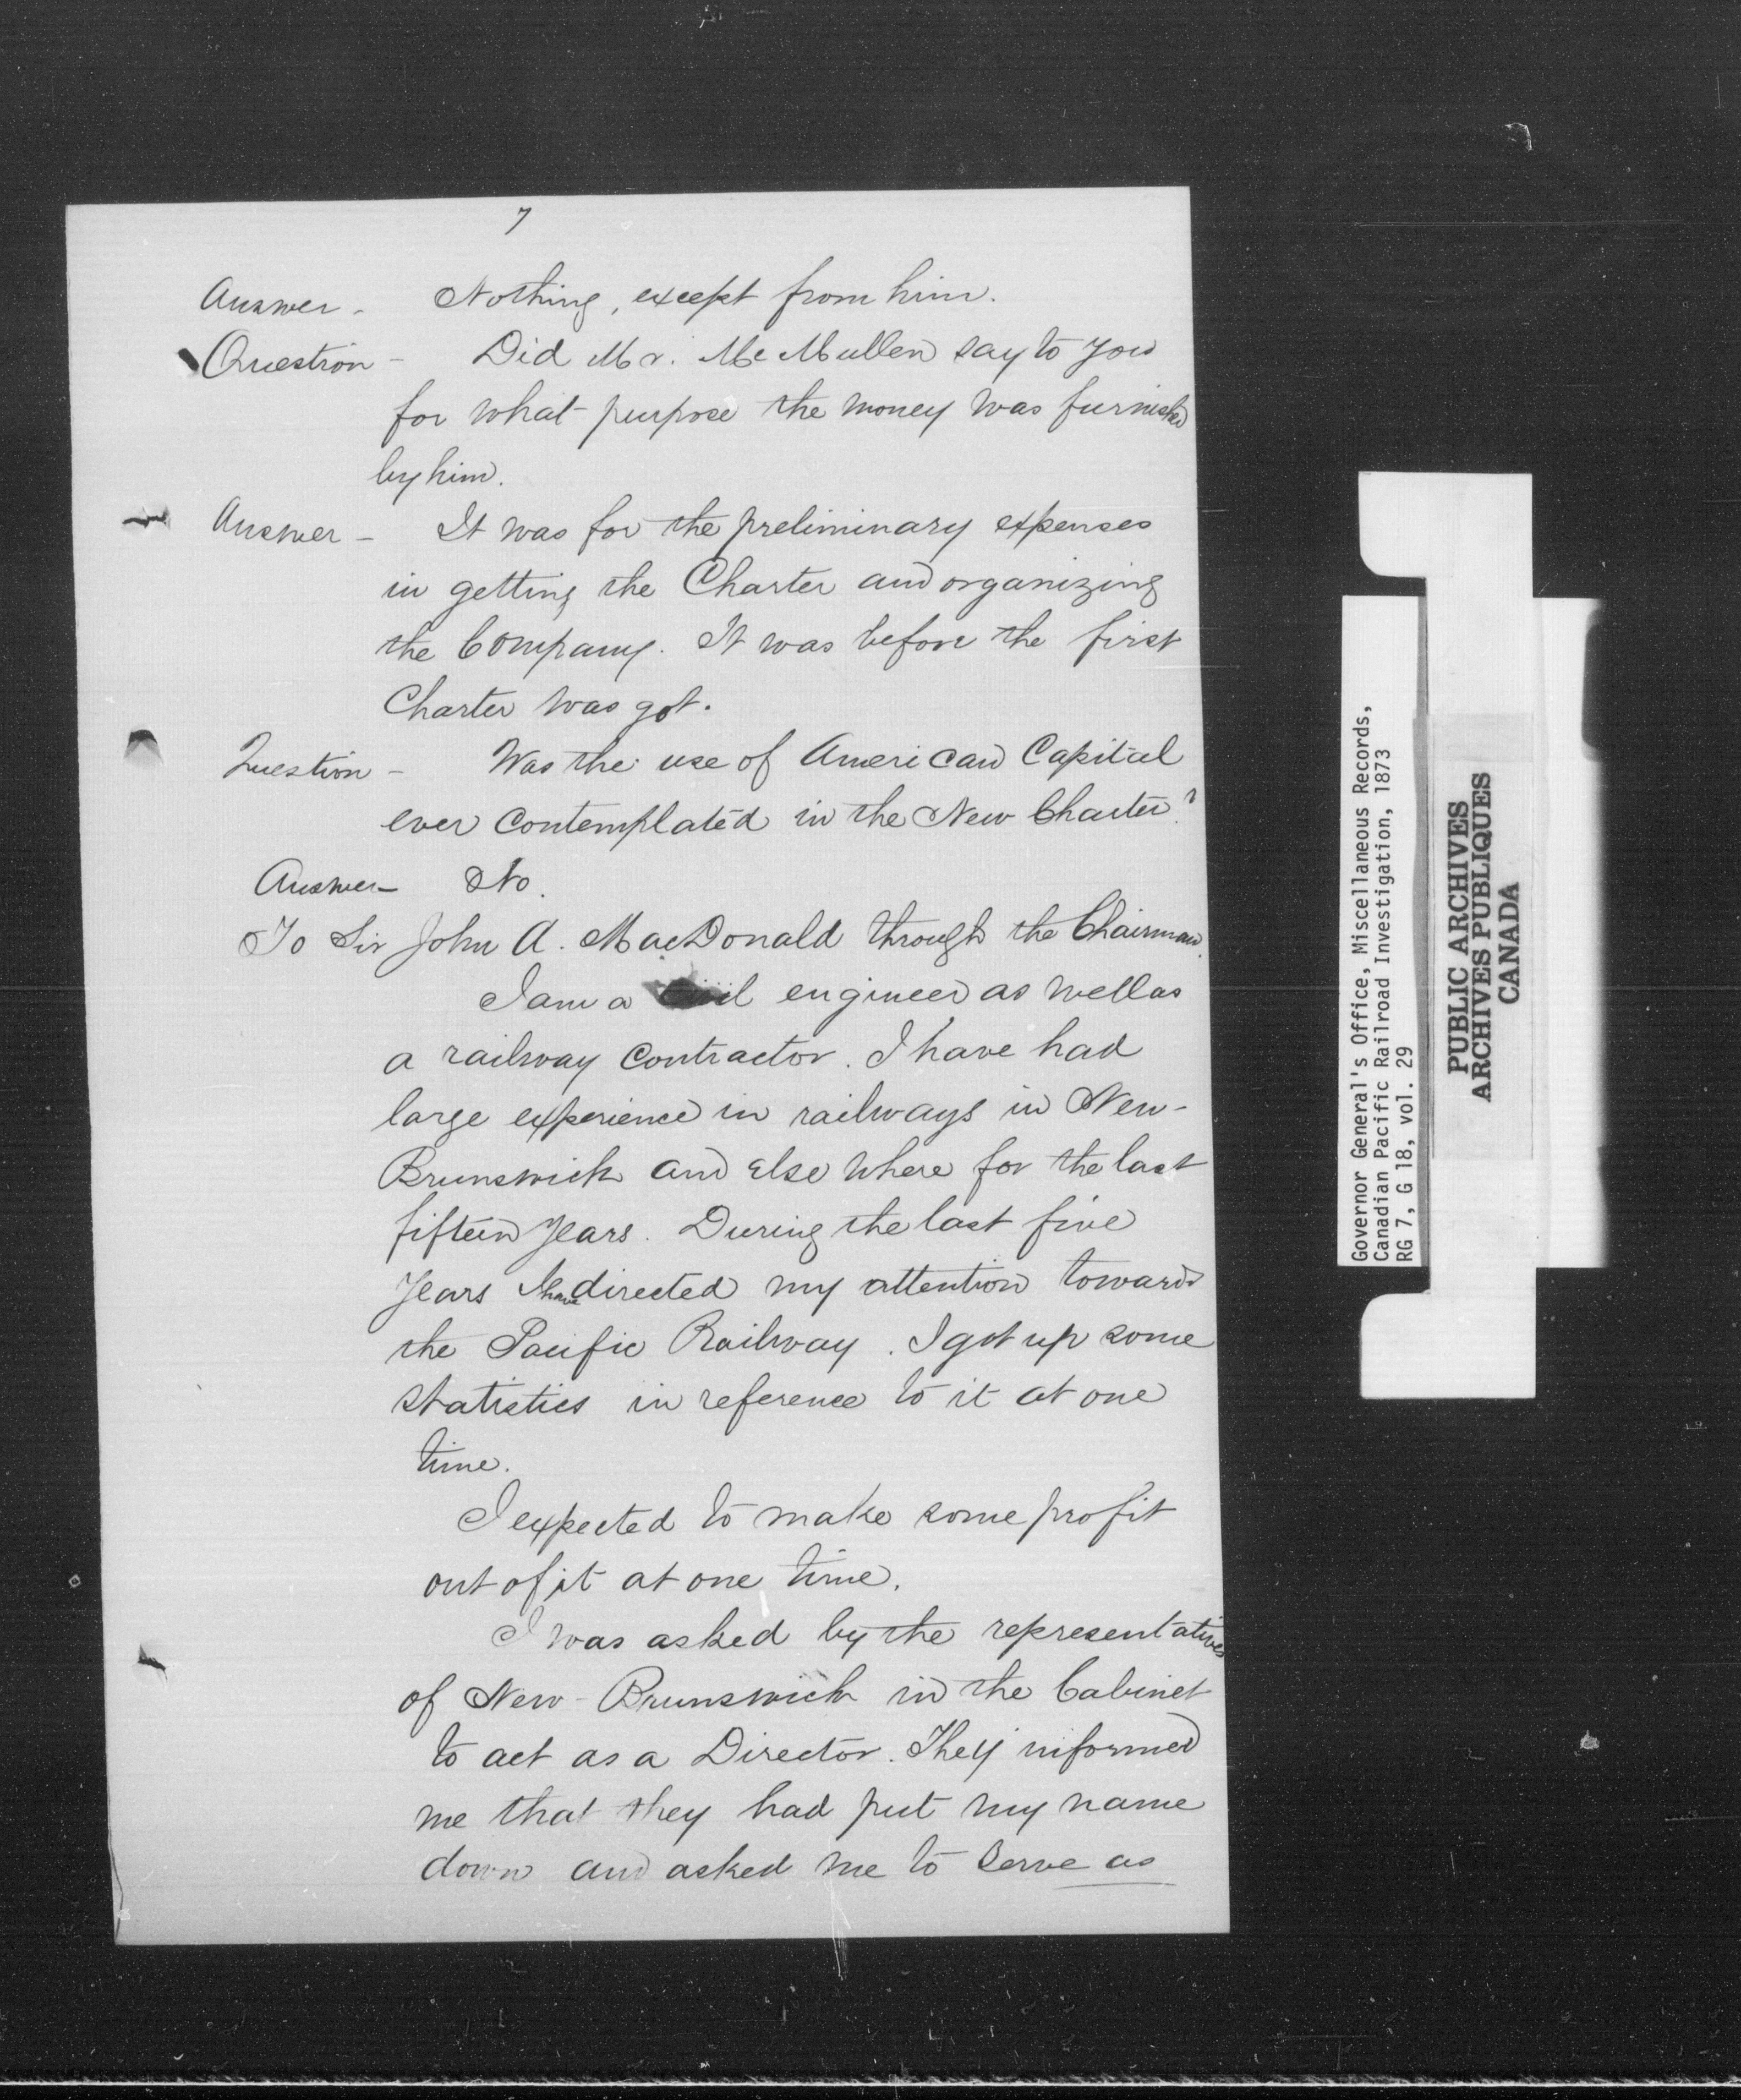 7
Answer - Nothing, except from him.
Question - Did Mr. McMullen say to you
for what purpose the money was furnished
by him.
Answer - It was for the preliminary expenses
in getting the Charter and organizing
the Company. It was before the first
Charter was got.
Question - Was the use of American Capital
ever contemplated in the New Charter?
Answer - No.
To Sir John A. MacDonald through the Chairman.
I am a civil engineer as well as
a railway contractor. I have had
large experience in railways in New-
Brunswick and else where for the last
fifteen years. During the last five
years I have directed my attention towards
the Pacific Railway. I got up some
statistics in reference to it at one
time.
I expected to make some profit
out of it at one time.
I was asked by the representatives
of New-Brunswick in the Cabinet
to act as a Director. They informed
me that they had put my name
down and asked me to serve as
Governor General's Office, Miscellaneous Records,
Canadian Pacific Railroad Investigation, 1873
RG 7, G 18, vol. 29
PUBLIC ARCHIVES
ARCHIVES PUBLIQUES
CANADA